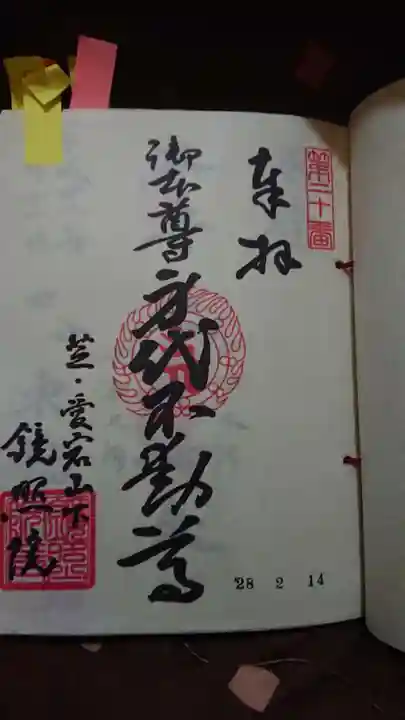 第二十番
奉拝
御本尊 身代不動尊
芝・愛宕山下
鏡照院
'28 2 14